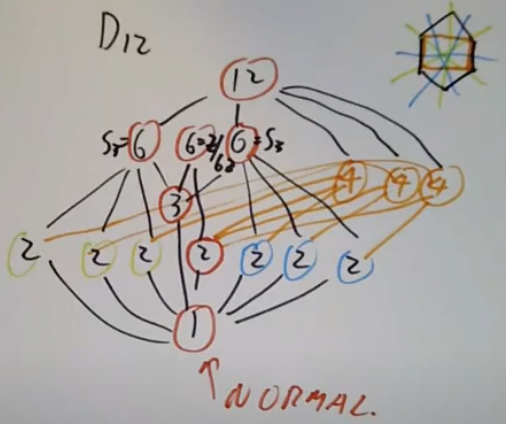 D12
12
S3=6 6=Z/6Z 6=S3
4 4 4
3
2 2 2 2 2 2 2
1
↑ NORMAL.